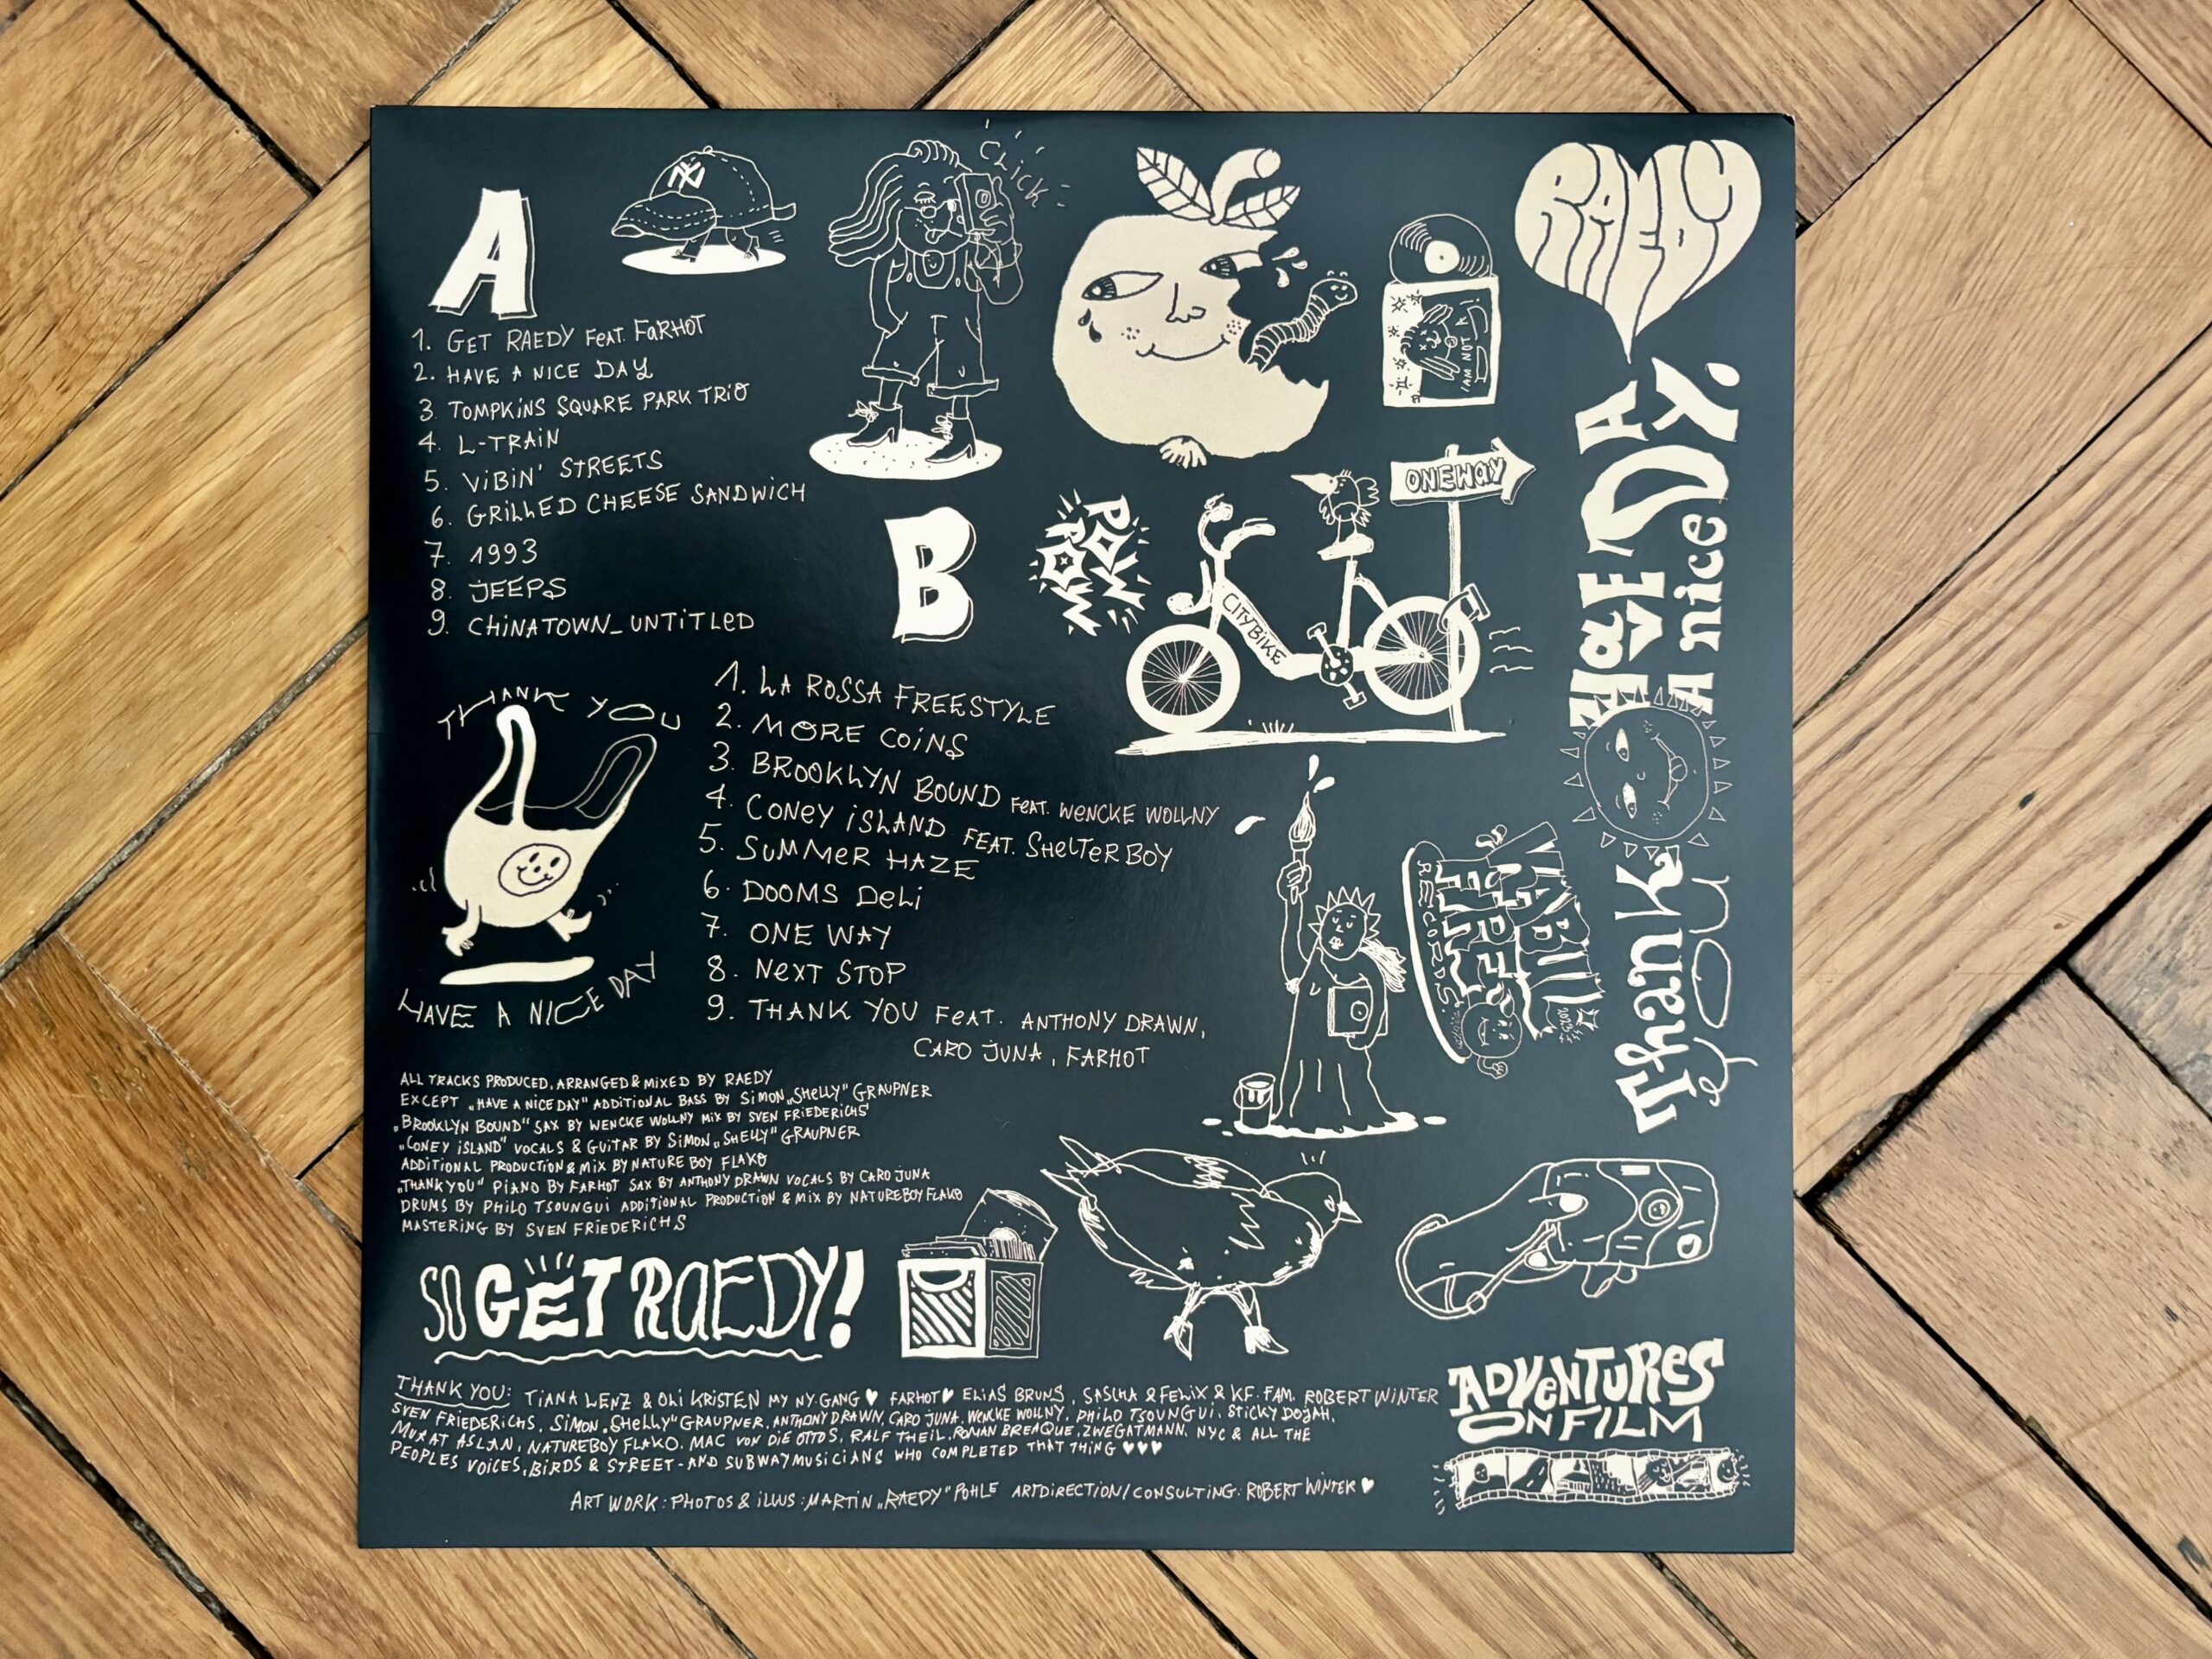 A
1. GET RAEDY FEAT. FARHOT
2. HAVE A NICE DAY
3. TOMPKINS SQUARE PARK TRIO
4. L-TRAIN
5. VIBIN' STREETS
6. GRILLED CHEESE SANDWICH
7. 1993
8. JEEPS
9. CHINATOWN_UNTITLED
NY
CLICK
RAEDY
I AM NOT
HAVE A
A nice DAY,
Thank
you
ONEWAY
CITYBIKE
B
1. LA ROSSA FREESTYLE
2. MORE COINS
3. BROOKLYN BOUND FEAT. WENCKE WOLLNY
4. CONEY ISLAND FEAT. SHELTER BOY
5. SUMMER HAZE
6. DOOMS DELI
7. ONE WAY
8. NEXT STOP
9. THANK YOU FEAT. ANTHONY DRAWN,
CARO JUNA, FARHOT
THANK YOU
HAVE A NICE DAY
KABUL
FIRE
RECORDS
ALL TRACKS PRODUCED, ARRANGED & MIXED BY RAEDY
EXCEPT „HAVE A NICE DAY" ADDITIONAL BASS BY SIMON „SHELLY" GRAUPNER
„BROOKLYN BOUND" SAX BY WENCKE WOLLNY MIX BY SVEN FRIEDERICHS
„CONEY ISLAND" VOCALS & GUITAR BY SIMON „SHELLY" GRAUPNER
ADDITIONAL PRODUCTION & MIX BY NATURE BOY FLAKO
„THANK YOU" PIANO BY FARHOT SAX BY ANTHONY DRAWN VOCALS BY CARO JUNA
DRUMS BY PHILO TSOUNGUI ADDITIONAL PRODUCTION & MIX BY NATUREBOY FLAKO
MASTERING BY SVEN FRIEDERICHS
SO GET RAEDY!
THANK YOU: TIANA LENZ & OLI KRISTEN MY NY.GANG ♥ FARHOT ♥ ELIAS BRUNS, SASCHA & FELIX & KF. FAM. ROBERT WINTER
SVEN FRIEDERICHS, SIMON „SHELLY" GRAUPNER, ANTHONY DRAWN, CARO JUNA, WENCKE WOLLNY, PHILO TSOUNGUI, STICKY DOJAH,
MURAT ASLAN, NATUREBOY FLAKO, MAC VON DIE OTTOS, RALF THEIL, ROMAN BREAQUE, ZWEGATMANN, NYC & ALL THE
PEOPLES VOICES, BIRDS & STREET-AND SUBWAYMUSICIANS WHO COMPLETED THAT THING ♥♥♥
ART WORK: PHOTOS & ILLUS: MARTIN „RAEDY" POHLE ARTDIRECTION/CONSULTING: ROBERT WINTER ♥
ADVENTURES
ON FILM